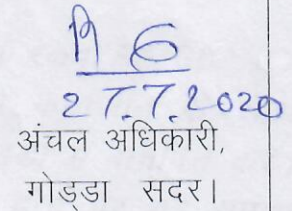 27.7.2020
अंचल अधिकारी,
गोड्डा सदर।